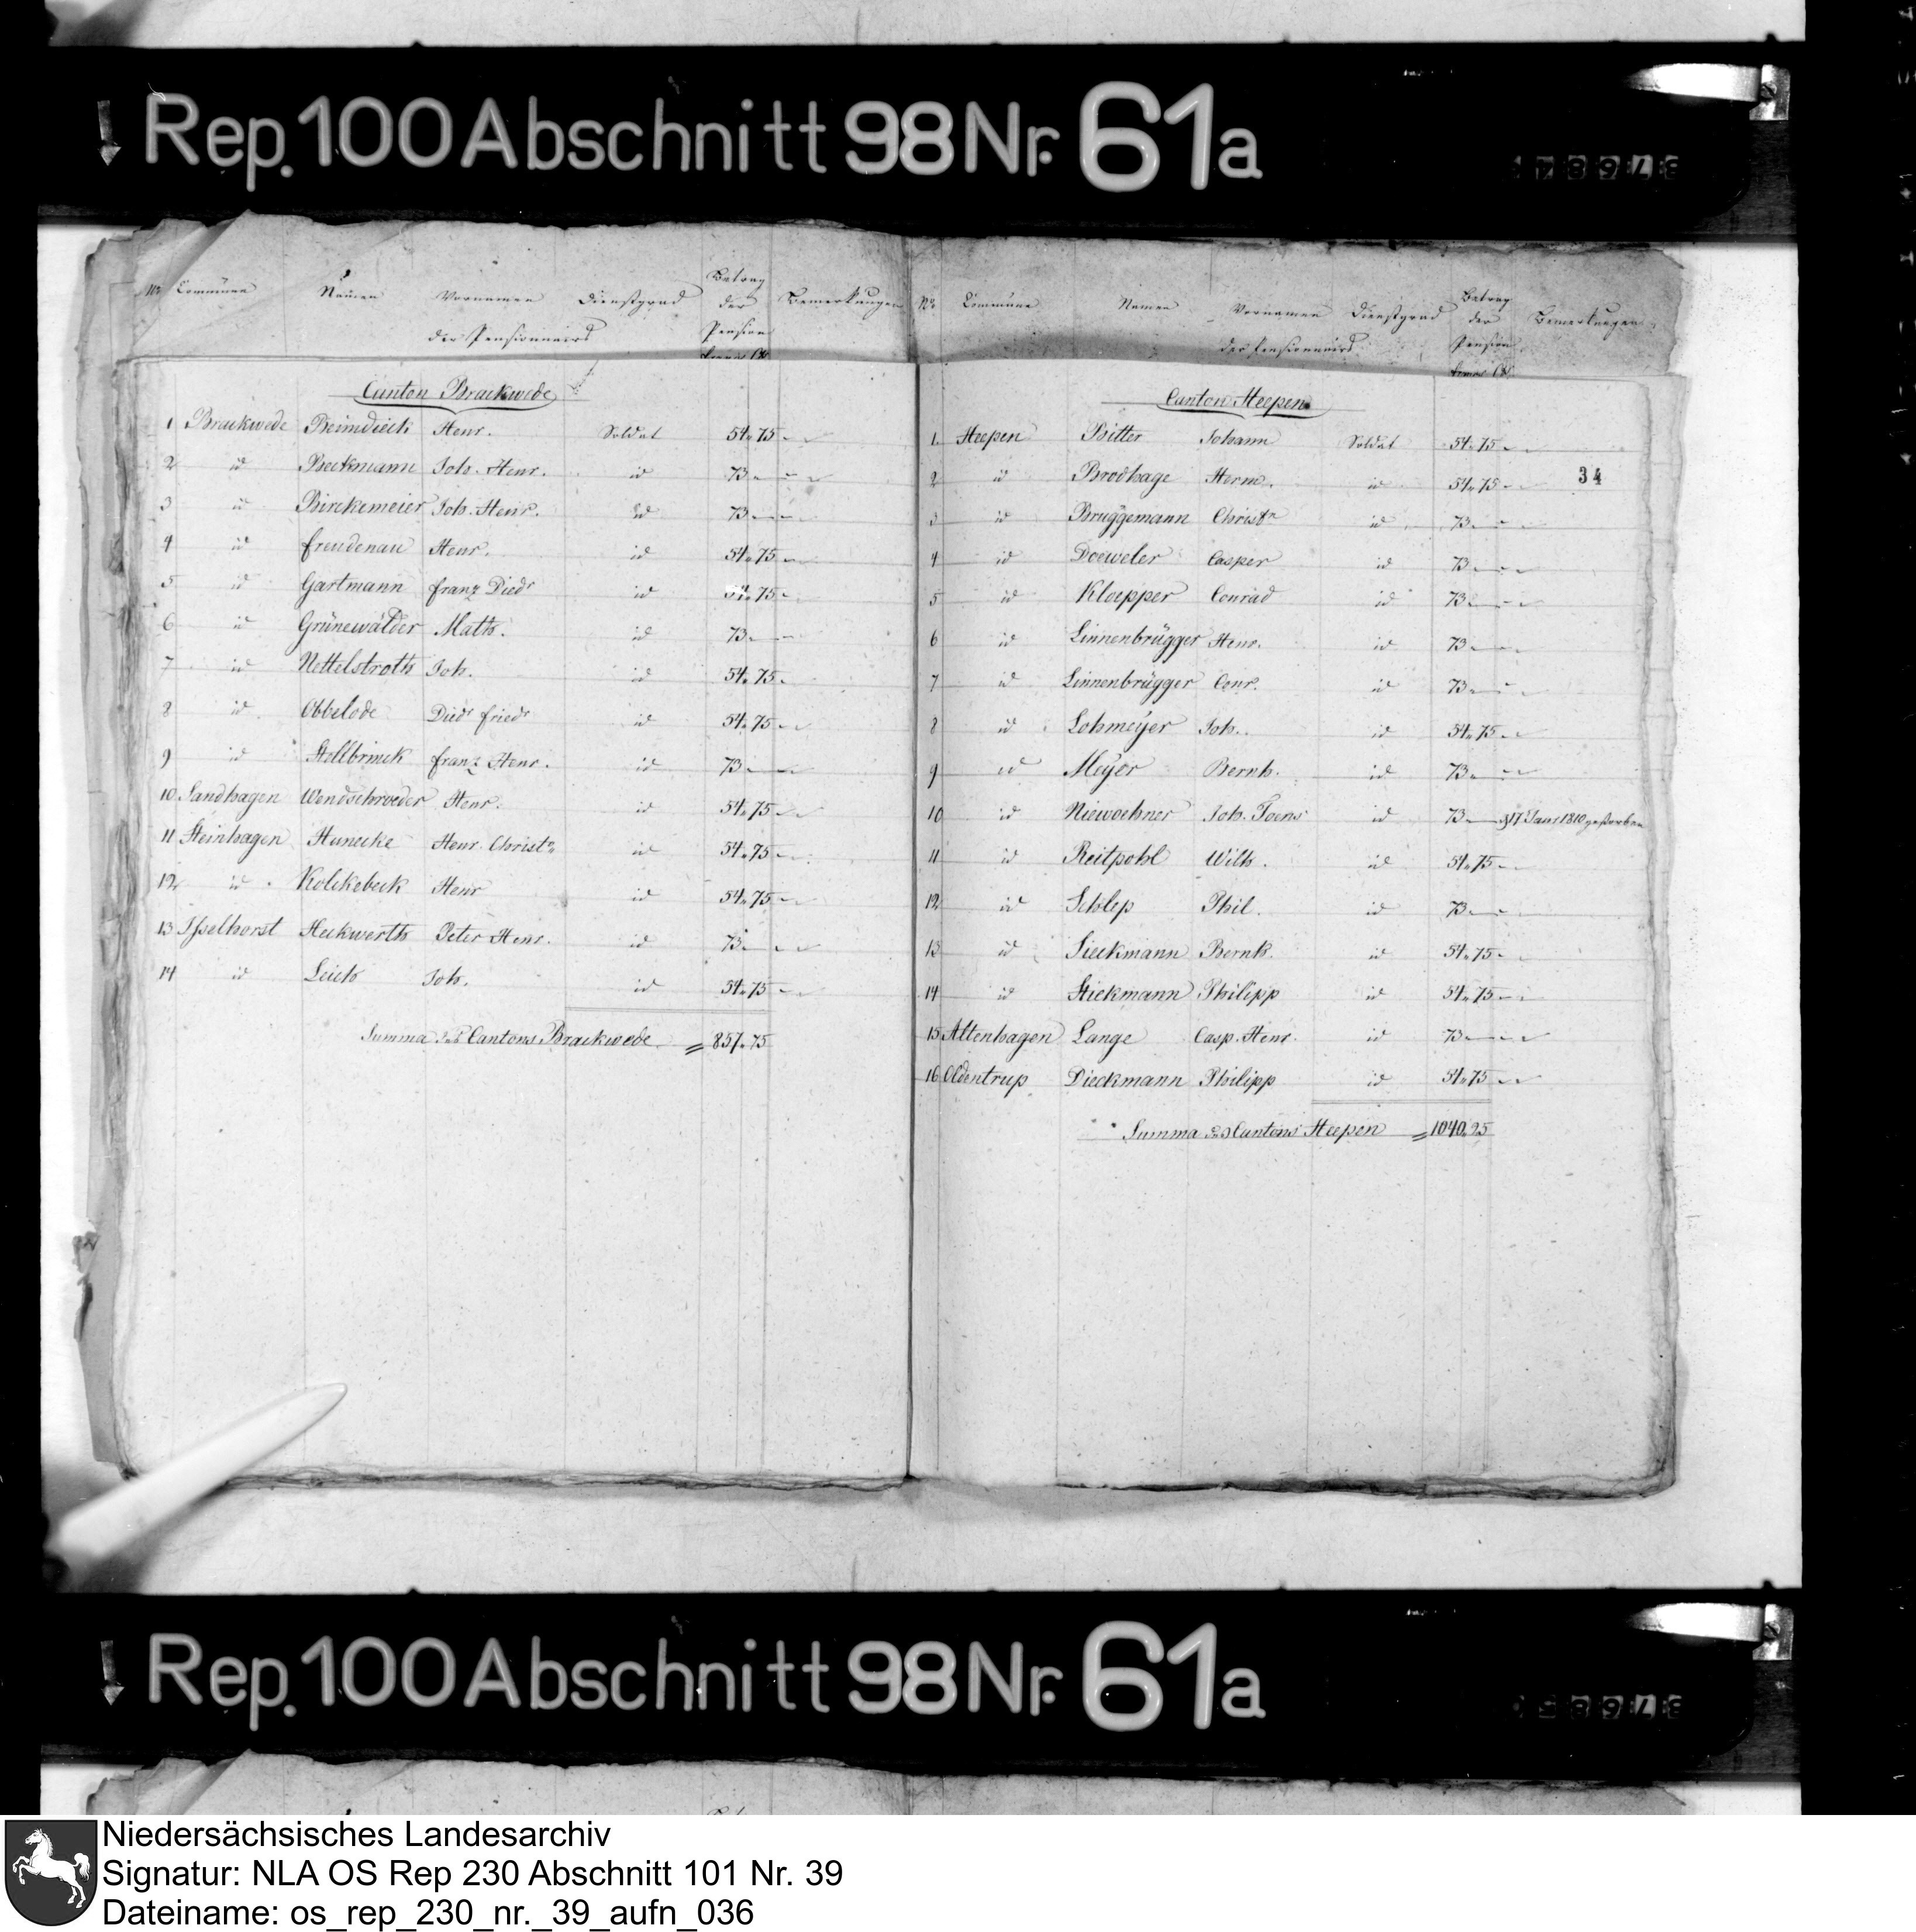 Rep. 100 Abschnitt 98 Nr. 61a
Nr. Commünen Namen Vornamen Dienstgrad Betrag der Pension Bemerkungen
der Pensionnairs
francs
Canton Brackwede
1 Brackwede Beimdieck Henr. Soldat 54. 75
2 id Beckmann Joh. Henr. id 73
3 id Birckemeier Joh. Henr. id 73
4 id Freudenau Henr. id 54. 75
5 id Gartmann Franz Diedr id 54. 75
6 id Grünewälder Math. id 73
7 id Nettelstroth Joh. id 54. 75
8 id Obbelode Diedr Friedr id 54. 75
9 id Stellbrinck Franz Henr. id 73
10 Sandhagen Wendschroeder Henr. id 54. 75
11 Steinhagen Hunecke Henr. Christn id 54. 75
12 id Kolckebeck Henr id 54. 75
13 Isselhorst Heckwerth Peter Henr. id 73
14 id Leich Joh. id 54. 75
Summa des Cantons Brackwede = 857. 75
Nr. Commüne Namen Vornamen Dienstgrad Betrag der Pension Bemerkungen
der Pensionnairs
francs
Canton Heepen
34
1. Heepen Bitter Johann Soldat 54. 75
2 id Brodhage Herm. id 54. 75
3 id Bruggemann Christn id 73
4 id Doeweler Casper id 73
5 id Kloepper Conrad id 73
6 id Linnenbrügger Henr. id 73
7 id Linnenbrügger Conr. id 73
8 id Lohmeyer Joh. id 54. 75
9 id Meyer Bernh. id 73
10 id Niewoehner Joh. Toens id 73 17 Janr 1810 gestorben
11 id Reitpohl Wilh. id 54. 75
12 id Schlep Phil. id 73
13 id Sieckmann Bernh. id 54. 75
14 id Stickmann Philipp id 54. 75
15 Altenhagen Lange Casp. Henr. id 73
16 Oldentrup Dieckmann Philipp id 54. 75
Summa des Cantons Heepen = 1040. 25
Rep. 100 Abschnitt 98 Nr. 61a
Niedersächsisches Landesarchiv
Signatur: NLA OS Rep 230 Abschnitt 101 Nr. 39
Dateiname: os_rep_230_nr._39_aufn_036